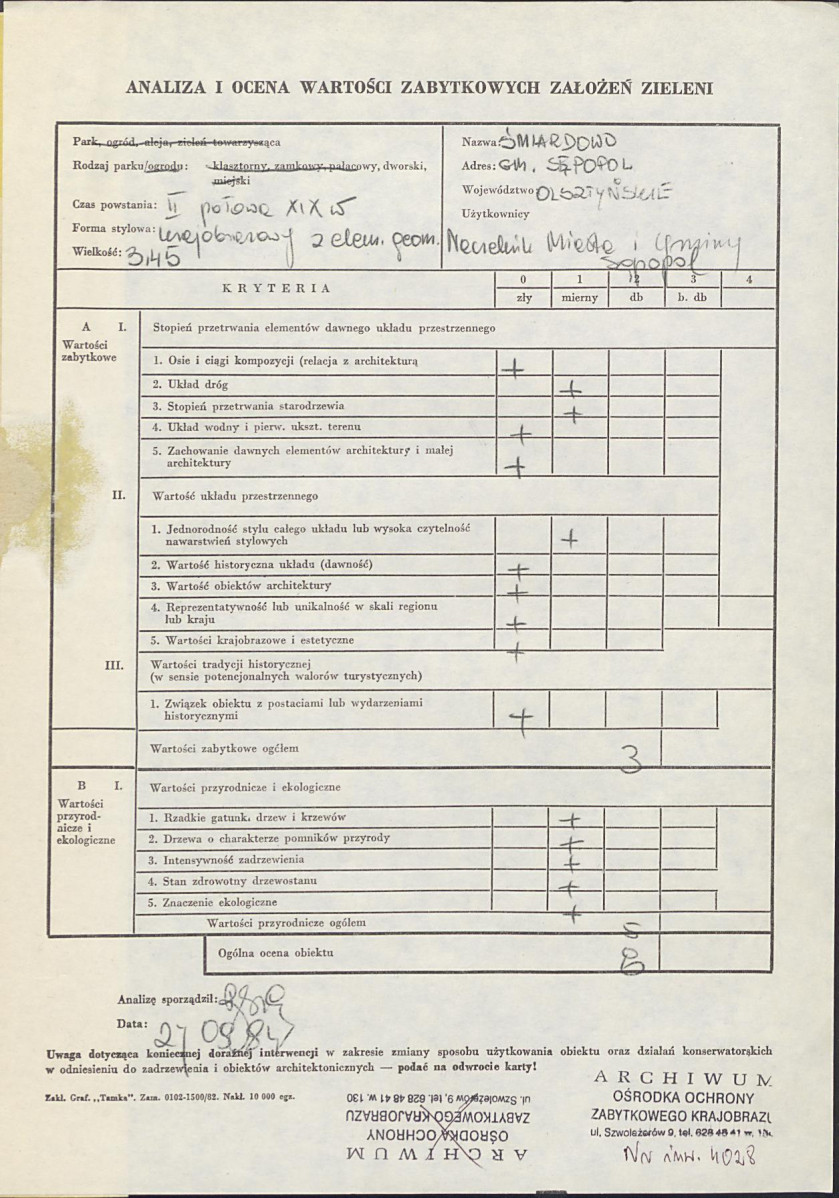 ANALIZA I OCENA WARTOŚCI ZABYTKOWYCH ZAŁOŻEŃ ZIELENI
Park, ogród, aleja, zieleń towarzysząca
Rodzaj parku/ogrodu: klasztorny, zamkowy, pałacowy, dworski,
miejski
Czas powstania: II połowa XIX w
Forma stylowa: krajobrazowy z elem. geom.
Wielkość: 3,45
Nazwa: ŚMIARDOWO
Adres: GM. SĘPOPOL
Województwo OLSZTYŃSKIE
Użytkownicy
Naczelnik Miasta i Gminy
Sępopol
KRYTERIA
0 1 2 3 4
zły mierny db b. db
A I. Stopień przetrwania elementów dawnego układu przestrzennego
Wartości
zabytkowe
1. Osie i ciągi kompozycji (relacja z architekturą +
2. Układ dróg +
3. Stopień przetrwania starodrzewia +
4. Układ wodny i pierw. ukszt. terenu +
5. Zachowanie dawnych elementów architektury i małej
architektury +
II. Wartość układu przestrzennego
1. Jednorodność stylu całego układu lub wysoka czytelność
nawarstwień stylowych +
2. Wartość historyczna układu (dawność) +
3. Wartość obiektów architektury +
4. Reprezentatywność lub unikalność w skali regionu
lub kraju +
5. Wartości krajobrazowe i estetyczne +
III. Wartości tradycji historycznej
(w sensie potencjonalnych walorów turystycznych)
1. Związek obiektu z postaciami lub wydarzeniami
historycznymi +
Wartości zabytkowe ogółem 3
B I. Wartości przyrodnicze i ekologiczne
Wartości
przyrod-
nicze i
ekologiczne
1. Rzadkie gatunk. drzew i krzewów +
2. Drzewa o charakterze pomników przyrody +
3. Intensywność zadrzewienia +
4. Stan zdrowotny drzewostanu +
5. Znaczenie ekologiczne +
Wartości przyrodnicze ogółem 5
Ogólna ocena obiektu 8
Analizę sporządził:
Data: 27 09 84
Uwaga dotycząca koniecznej doraźnej interwencji w zakresie zmiany sposobu użytkowania obiektu oraz działań konserwatorskich
w odniesieniu do zadrzewienia i obiektów architektonicznych — podać na odwrocie karty!
Zakł. Graf. „Tamka". Zam. 0102-1500/82. Nakł. 10 000 egz.
ARCHIWUM
OŚRODKA OCHRONY
ZABYTKOWEGO KRAJOBRAZU
ul. Szwoleżerów 9, tel. 628 48 41 w. 130
ARCHIWUM
OŚRODKA OCHRONY
ZABYTKOWEGO KRAJOBRAZU
ul. Szwoleżerów 9, tel. 628 48 41 w.
NN inw. 4028